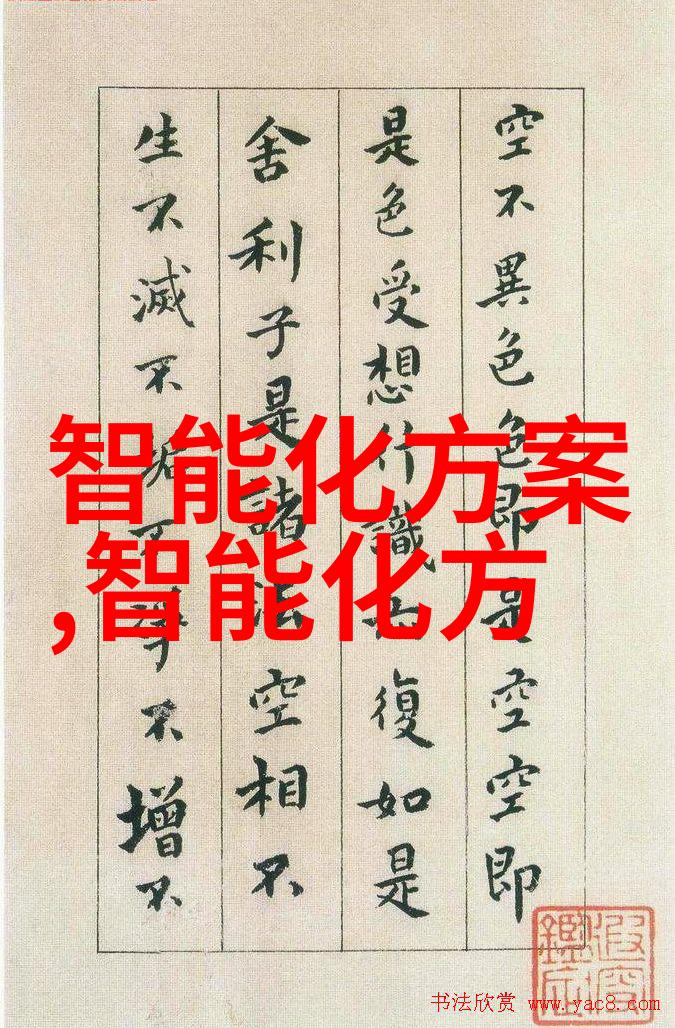 空不異色色即是空空即
是色受想行識亦復如是
舍利子是諸法空相不
生不滅不垢不淨不增不
智能化方案
,智能化方
书法欣赏 www.yac8.com